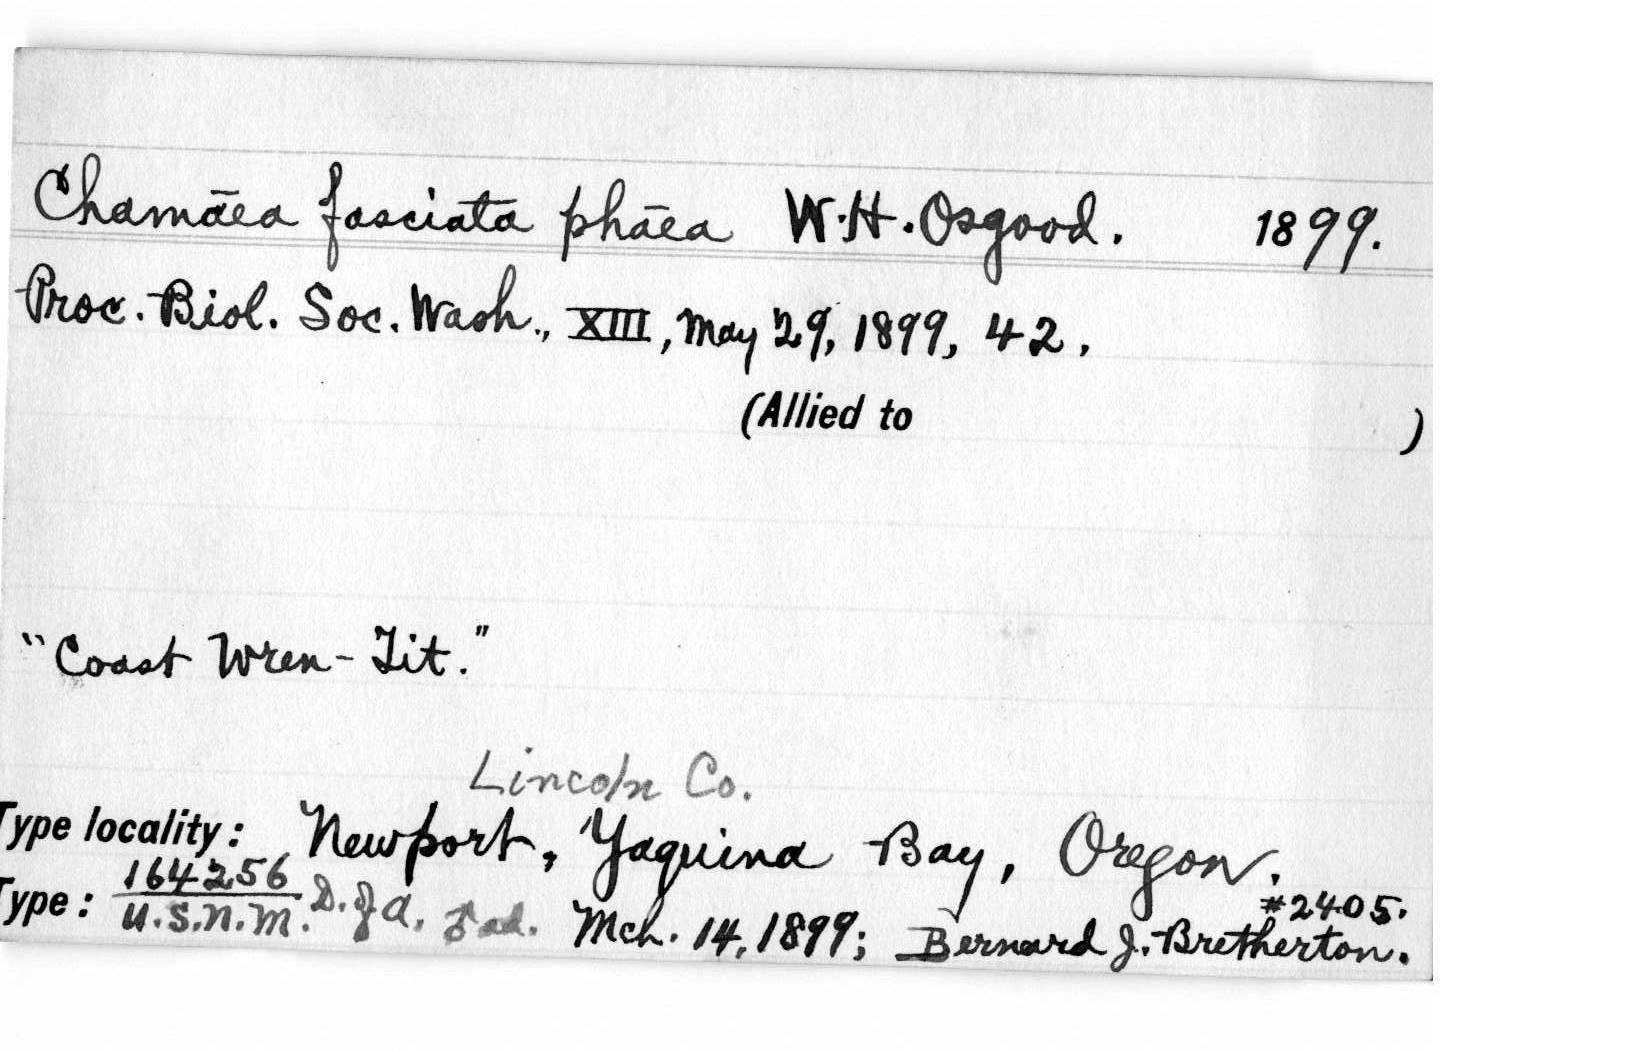 Chamāea fasciata phāea W.H. Osgood. 1899.
Proc. Biol. Soc. Wash., XIII, May 29, 1899, 42.
(Allied to )
"Coast Wren-Tit."
Lincoln Co.
Type locality: Newport, Yaquina Bay, Oregon.
Type: 164256 / U.S.N.M. ad. Mch. 14, 1899; Bernard J. Bretherton. #2405.